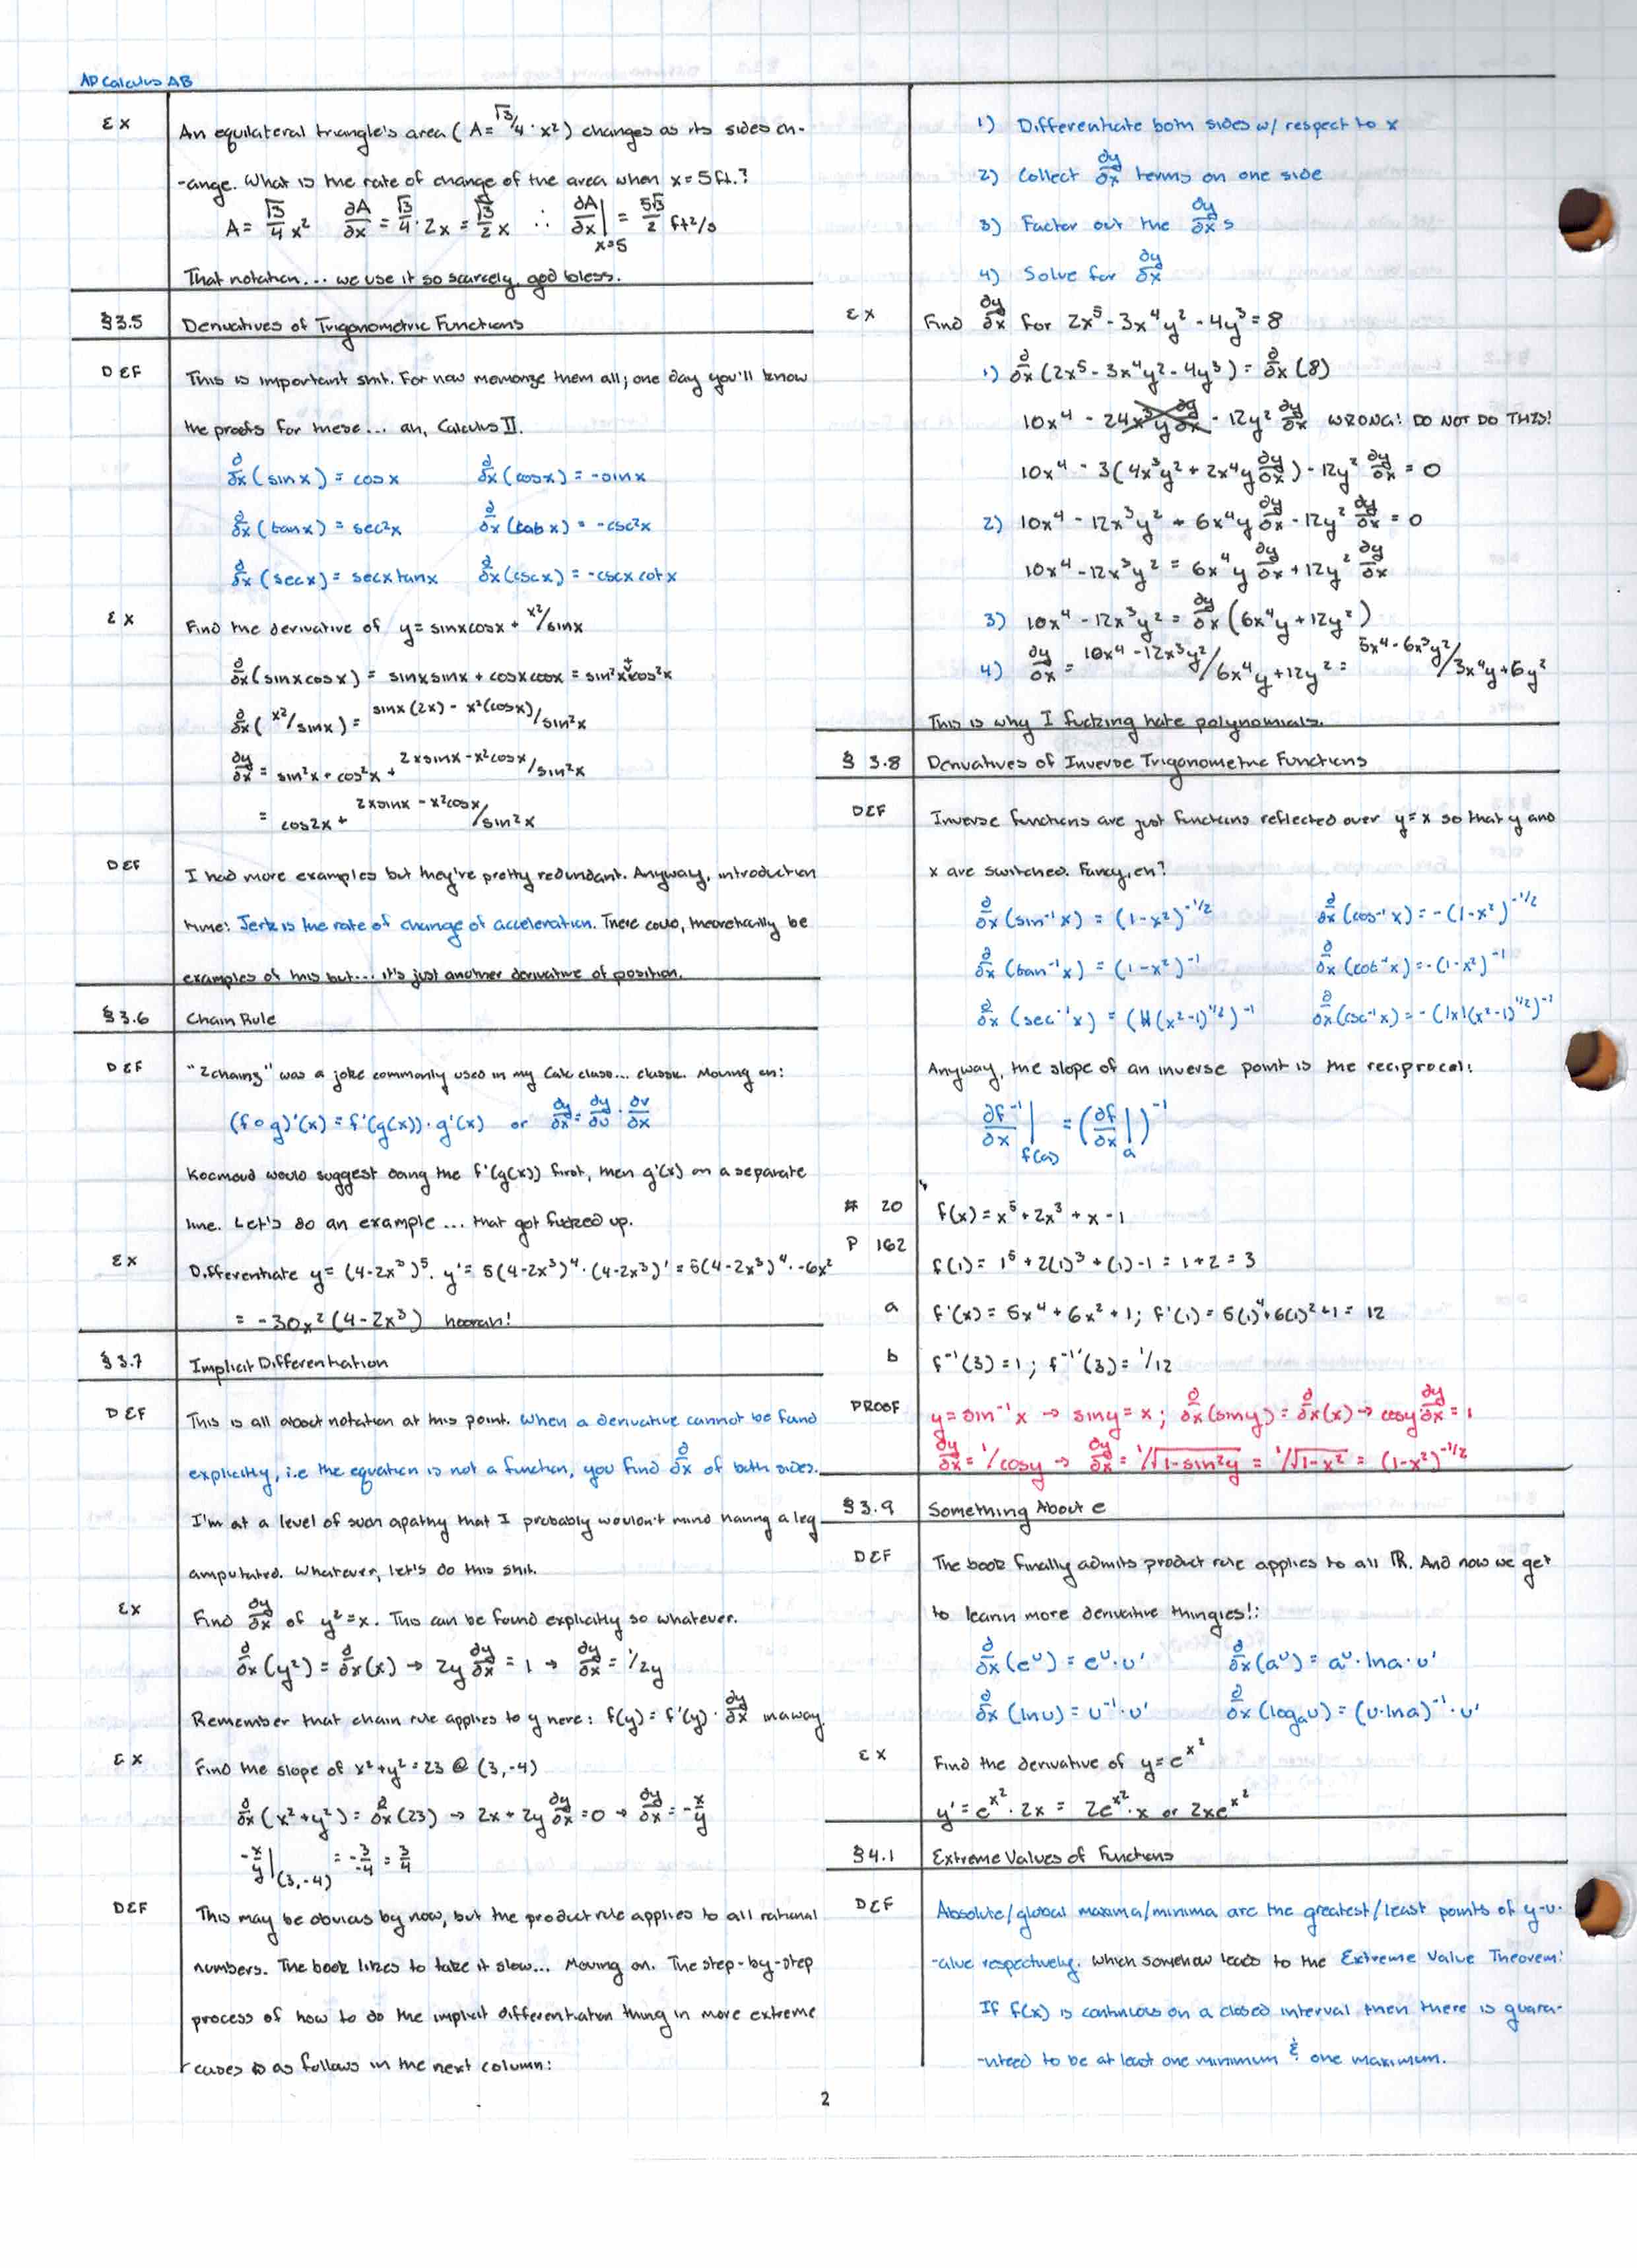 AP Calculus AB
EX An equilateral triangle's area (A = √3/4 · x²) changes as its sides ch-
-ange. What is the rate of change of the area when x = 5 ft.?
A = √3/4 x² ∂A/∂x = √3/4 · 2x = √3/2 x ∴ ∂A/∂x |x=5 = 5√3/2 ft²/s
That notation... we use it so scarcely, god bless.
§3.5 Derivatives of Trigonometric Functions
DEF This is important shit. For now memorize them all; one day you'll know
the proofs for these... ah, Calculus II.
∂/∂x (sinx) = cosx ∂/∂x (cosx) = -sinx
∂/∂x (tanx) = sec²x ∂/∂x (cotx) = -csc²x
∂/∂x (secx) = secxtanx ∂/∂x (cscx) = -cscxcotx
EX Find the derivative of y = sinxcosx + x²/sinx
∂/∂x (sinxcosx) = sinxsinx + cosxcosx = sin²x + cos²x
∂/∂x (x²/sinx) = sinx(2x) - x²(cosx)/sin²x
∂y/∂x = sin²x + cos²x + 2xsinx - x²cosx/sin²x
= cos2x + 2xsinx - x²cosx/sin²x
DEF I had more examples but they're pretty redundant. Anyway, introduction
time: Jerk is the rate of change of acceleration. There could, theoretically be
examples of this but... it's just another derivative of position.
§3.6 Chain Rule
DEF "2chainz" was a joke commonly used in my Calc class... classic. Moving on:
(f∘g)'(x) = f'(g(x))·g'(x) or ∂y/∂x = ∂y/∂u · ∂u/∂x
Kocmoud would suggest doing the f'(g(x)) first, then g'(x) on a separate
line. Let's do an example... that got fucked up.
EX Differentiate y = (4-2x³)⁵. y' = 5(4-2x³)⁴·(4-2x³)' = 5(4-2x³)⁴·-6x²
= -30x²(4-2x³) hoorah!
§3.7 Implicit Differentiation
DEF This is all about notation at this point. When a derivative cannot be fund
explicitly, i.e the equation is not a function, you find ∂/∂x of both sides.
I'm at a level of such apathy that I probably wouldn't mind having a leg
amputated. Whatever, let's do this shit.
EX Find ∂y/∂x of y² = x. This can be found explicitly so whatever.
∂/∂x (y²) = ∂/∂x (x) → 2y ∂y/∂x = 1 → ∂y/∂x = 1/2y
Remember that chain rule applies to y here: f(y) = f'(y) · ∂y/∂x in a way.
EX Find the slope of x² + y² = 23 @ (3,-4)
∂/∂x (x² + y²) = ∂/∂x (23) → 2x + 2y ∂y/∂x = 0 → ∂y/∂x = -x/y
-x/y |(3,-4) = -3/-4 = 3/4
DEF This may be obvious by now, but the product rule applies to all rational
numbers. The book likes to take it slow... Moving on. The step-by-step
process of how to do the implicit differentiation thing in more extreme
cases is as follows in the next column:
1) Differentiate both sides w/ respect to x
2) Collect ∂y/∂x terms on one side
3) Factor out the ∂y/∂x s
4) Solve for ∂y/∂x
EX Find ∂y/∂x for 2x⁵ - 3x⁴y² - 4y³ = 8
1) ∂/∂x (2x⁵ - 3x⁴y² - 4y³) = ∂/∂x (8)
10x⁴ - 24x³y ∂y/∂x - 12y² ∂y/∂x WRONG! DO NOT DO THIS!
10x⁴ - 3(4x³y² + 2x⁴y ∂y/∂x) - 12y² ∂y/∂x = 0
2) 10x⁴ - 12x³y² + 6x⁴y ∂y/∂x - 12y² ∂y/∂x = 0
10x⁴ - 12x³y² = 6x⁴y ∂y/∂x + 12y² ∂y/∂x
3) 10x⁴ - 12x³y² = ∂y/∂x (6x⁴y + 12y²)
4) ∂y/∂x = 10x⁴ - 12x³y²/6x⁴y + 12y² = 5x⁴ - 6x³y²/3x⁴y + 6y²
This is why I fucking hate polynomials.
§ 3.8 Derivatives of Inverse Trigonometric Functions
DEF Inverse functions are just functions reflected over y = x so that y and
x are switched. Fancy, eh?
∂/∂x (sin⁻¹x) = (1-x²)^-1/2 ∂/∂x (cos⁻¹x) = -(1-x²)^-1/2
∂/∂x (tan⁻¹x) = (1-x²)⁻¹ ∂/∂x (cot⁻¹x) = -(1-x²)⁻¹
∂/∂x (sec⁻¹x) = (|x|(x²-1)^1/2)⁻¹ ∂/∂x (csc⁻¹x) = -(|x|(x²-1)^1/2)⁻¹
Anyway, the slope of an inverse point is the reciprocal:
∂f⁻¹/∂x |f(a) = (∂f/∂x |a)⁻¹
# 20 f(x) = x⁵ + 2x³ + x - 1
P 162 f(1) = 1⁵ + 2(1)³ + (1) - 1 = 1 + 2 = 3
a f'(x) = 5x⁴ + 6x² + 1; f'(1) = 5(1)⁴ + 6(1)² + 1 = 12
b f⁻¹(3) = 1; f⁻¹'(3) = 1/12
PROOF y = sin⁻¹x → siny = x; ∂/∂x (siny) = ∂/∂x (x) → cosy ∂y/∂x = 1
∂y/∂x = 1/cosy → ∂y/∂x = 1/√1-sin²y = 1/√1-x² = (1-x²)^-1/2
§3.9 Something About e
DEF The book finally admits product rule applies to all ℝ. And now we get
to learn more derivative thingies!:
∂/∂x (eᵘ) = eᵘ·u' ∂/∂x (aᵘ) = aᵘ·lna·u'
∂/∂x (lnu) = u⁻¹·u' ∂/∂x (logₐu) = (u·lna)⁻¹·u'
EX Find the derivative of y = e^x²
y' = e^x² · 2x = 2e^x² · x or 2xe^x²
§4.1 Extreme Values of Functions
DEF Absolute/global maxima/minima are the greatest/least points of y-v-
-alue respectively. Which somehow leads to the Extreme Value Theorem:
If f(x) is continuous on a closed interval then there is guara-
-nteed to be at least one minimum & one maximum.
2